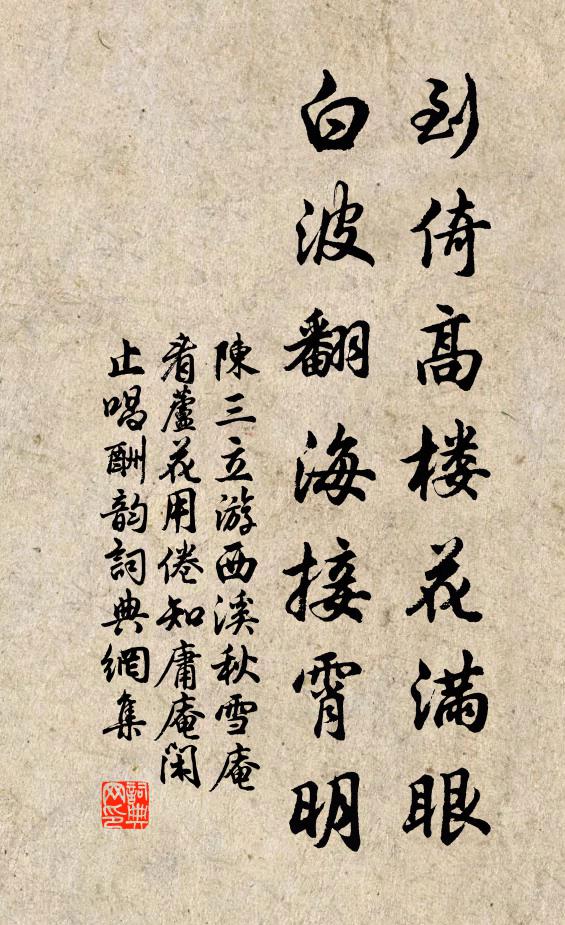 到倚高楼花满眼
白波翻海接霄明
陳三立游西溪秋雪庵
看蘆花用倦知庸庵閑
止唱酬韵詞典網集
詞典
网印